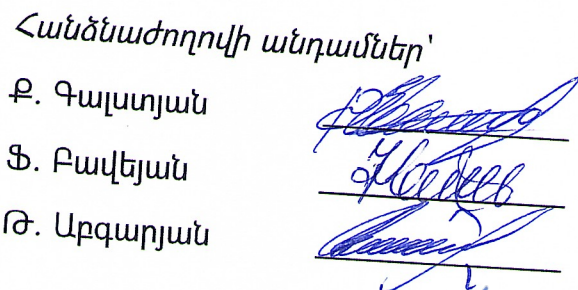 Հանձնաժողովի անդամներ՝
Ք. Գալստյան
Ֆ. Բավեյան
Թ. Աբգարյան